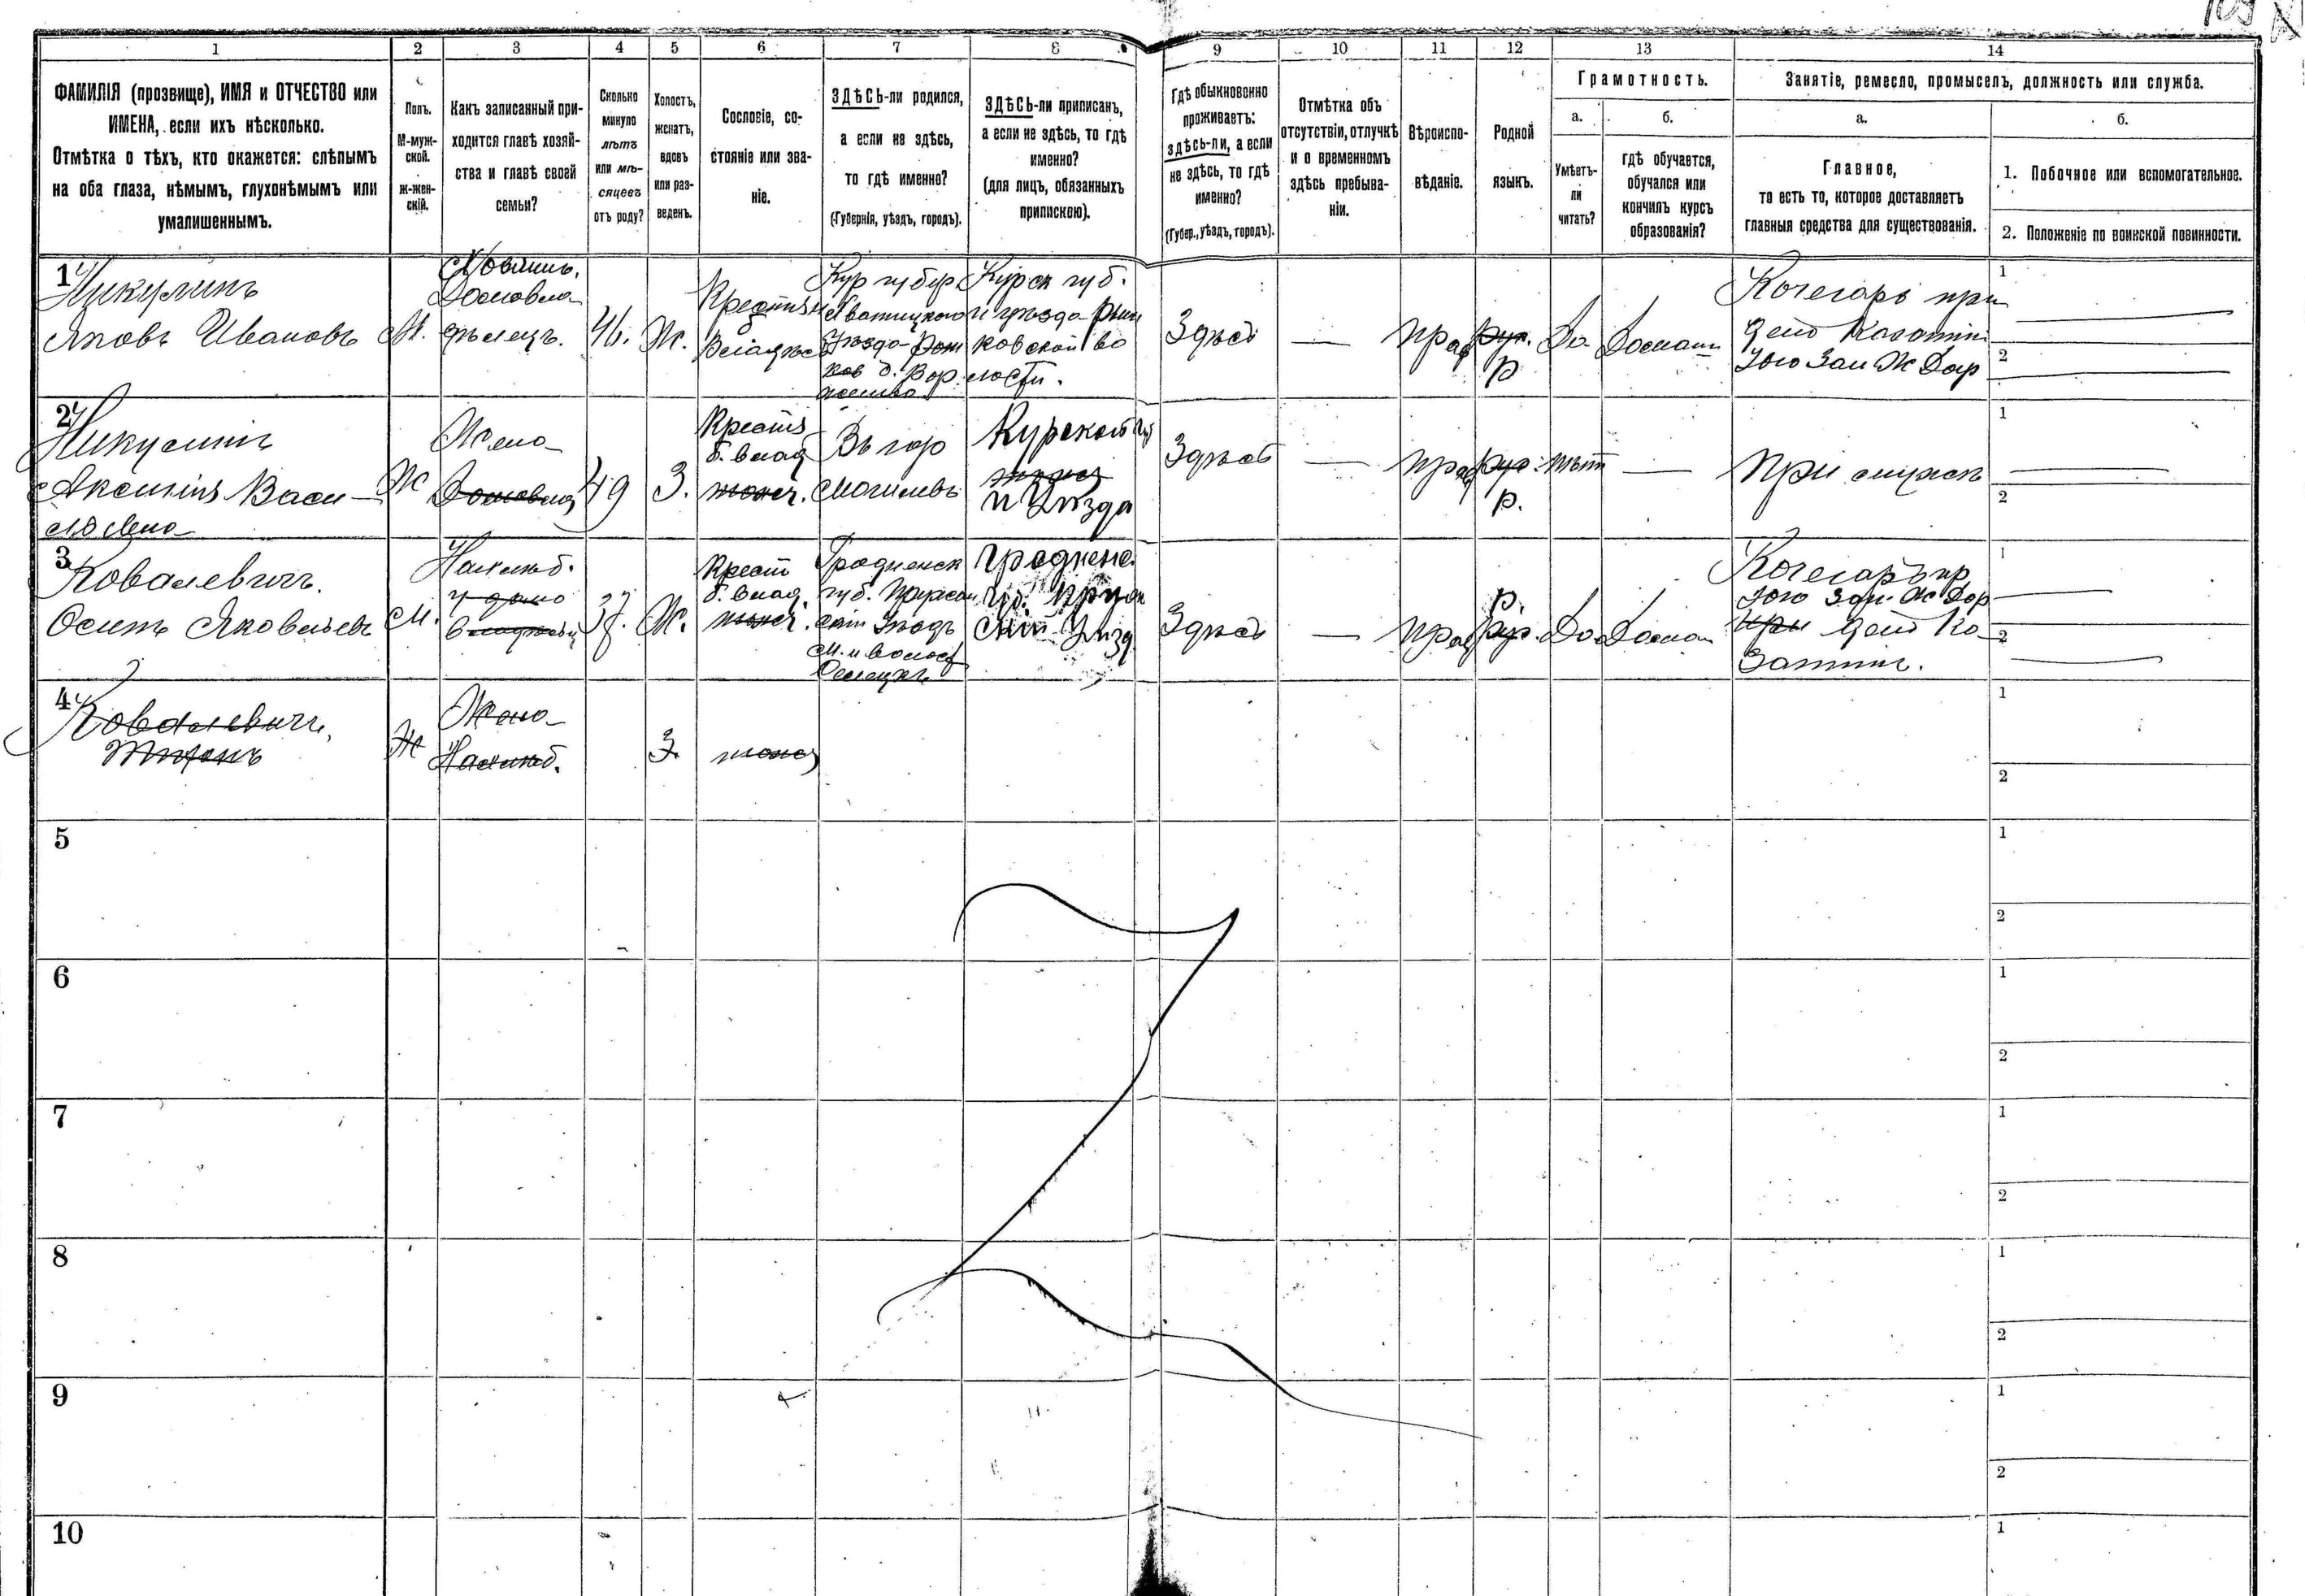 109
1 2 3 4 5 6 7 8 9 10 11 12 13 14
ФАМИЛІЯ (прозвище), ИМЯ и ОТЧЕСТВО или
ИМЕНА, если ихъ нѣсколько.
Отмѣтка о тѣхъ, кто окажется: слѣпымъ
на оба глаза, нѣмымъ, глухонѣмымъ или
умалишеннымъ.
Полъ.
М-муж-
ской.
ж-жен-
скій.
Какъ записанный при-
ходится главѣ хозяй-
ства и главѣ своей
семьи?
Сколько
минуло
лѣтъ
или мѣ-
сяцевъ
отъ роду?
Холостъ,
женатъ,
вдовъ
или раз-
веденъ.
Сословіе, со-
стояніе или зва-
ніе.
ЗДѢСЬ-ли родился,
а если не здѣсь,
то гдѣ именно?
(Губернія, уѣздъ, городъ).
ЗДѢСЬ-ли приписанъ,
а если не здѣсь, то гдѣ
именно?
(для лицъ, обязанныхъ
припискою).
Гдѣ обыкновенно
проживаетъ:
здѣсь-ли, а если
не здѣсь, то гдѣ
именно?
(Губер., уѣздъ, городъ).
Отмѣтка объ
отсутствіи, отлучкѣ
и о временномъ
здѣсь пребыва-
ніи.
Вѣроиспо-
вѣданіе.
Родной
языкъ.
Грамотность.
а.
Умѣетъ-
ли
читать?
б.
гдѣ обучается,
обучался или
кончилъ курсъ
образованія?
Занятіе, ремесло, промыселъ, должность или служба.
а.
Главное,
то есть то, которое доставляетъ
главныя средства для существованія.
б.
1. Побочное или вспомогательное.
2. Положеніе по воинской повинности.
1
Никулинъ
Яковъ Ивановъ
М.
Хозяинъ.
46.
Ж.
Кур губер
Курск губ.
Здѣсь
—
Прав
р
До
Домаш
Кочегаръ при
депо Казатин
Юго Зап Ж Дор
1
2
2
Никулина
Аксинія Васи-
льевна
Ж
Жена
49
З.
Крестья
б. влад
Въ гор
Могилевъ
Курской губ
и Уѣзда
Здѣсь
—
Прав
р.
нѣт
—
При мужѣ
1
2
3
Ковалевичъ.
Осипъ Яковлевъ
М.
37.
Ж.
Крест
б. влад.
Гродненск
губ. Пружан
скій Уѣздъ
Гродненс.
губ. Пружан
скій Уѣзд
Здѣсь
—
Прав
р.
До
Дома
Кочегаръ пр
Юго Зап. Ж Дор
при депо Ка
затинъ.
1
2
4
Ковалевичъ,
Ж
Жена
З.
1
2
5
1
2
6
1
2
7
1
2
8
1
2
9
1
2
10
1